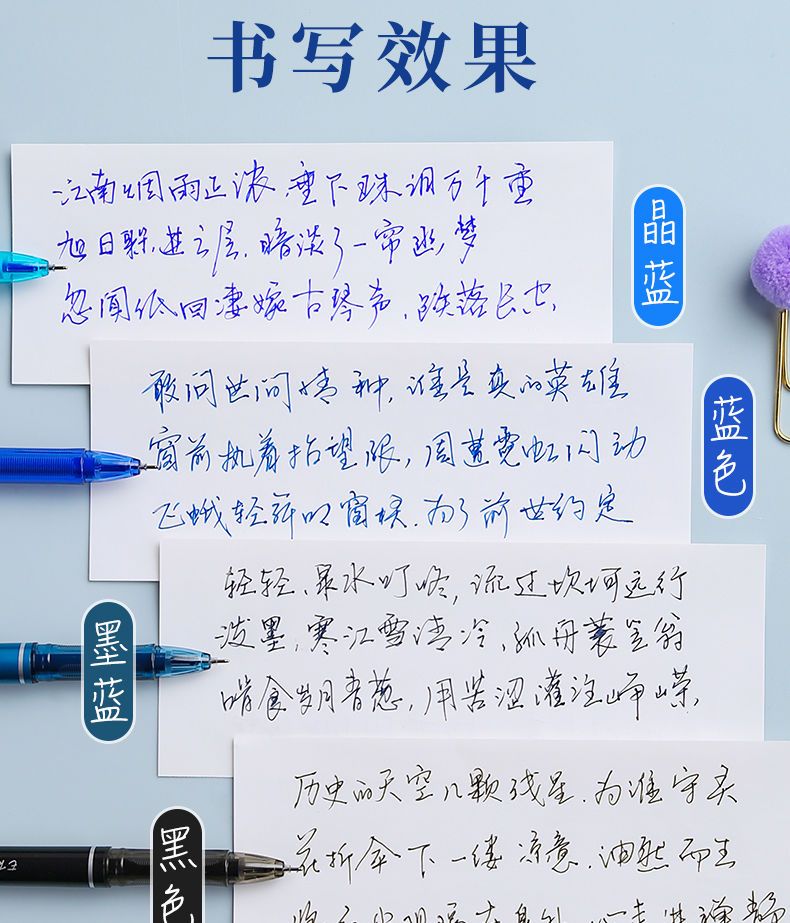 书写效果
江南烟雨正浓,垂下珠泪万千重
旭日躲进云层,暗淡了一帘幽梦
忽闻低回凄婉古琴声,跌落长空,
晶蓝
敢问世间情种,谁是真的英雄
窗前执着抬望眼,周遭霓虹闪动
飞蛾轻弃的窗棂,为了前世约定
蓝色
轻轻,泉水叮咚,流过坎坷远行
泼墨,寒江雪清冷,孤舟蓑笠翁
啃食岁月青葱,用苦涩灌注峥嵘,
墨蓝
历史的天空几颗残星,为谁守灵
花折伞下一缕凉意,油然而生
黑色